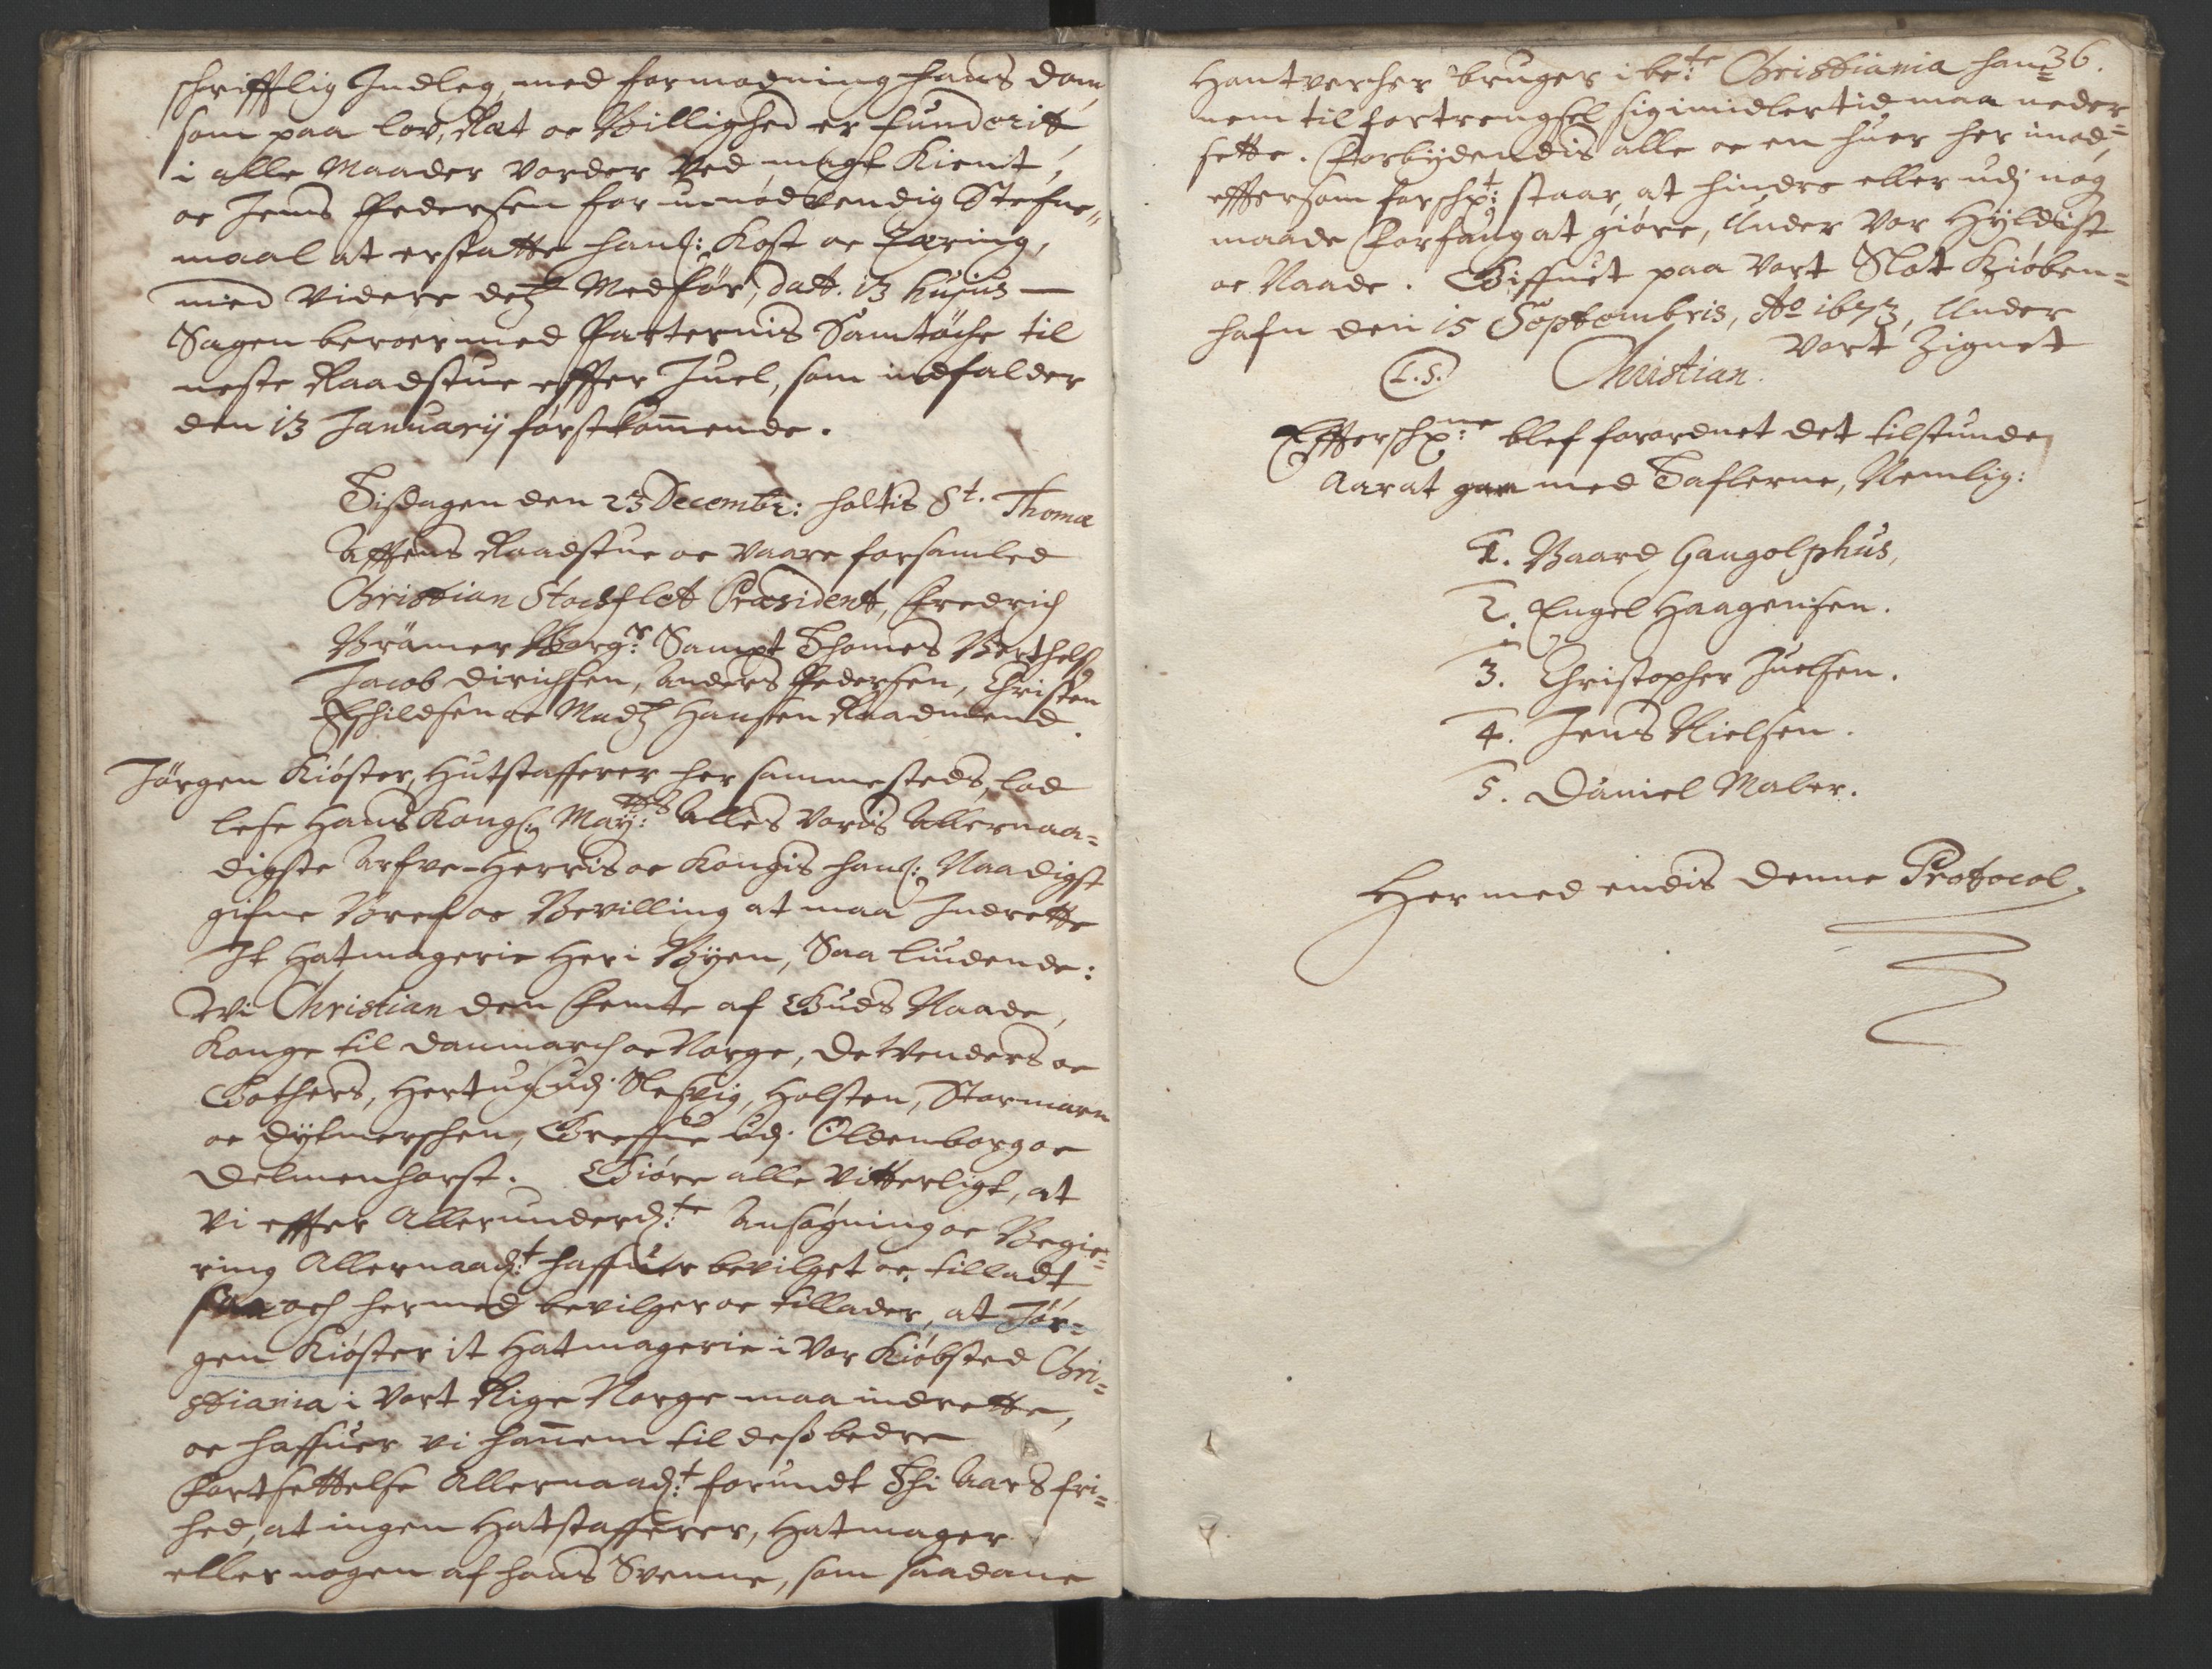 schrifftlig Indleg, med formodning hans dom,
som paa lov, Ræt oc Billighed er funderit,
i alle Maader vorder ved magt Kient,
oc Jens Pedersen for unødvendig Stefne-
maal at erstatte hanß: Kost oc Tæring,
med videre deß Medfør, datt. 13 hujus —
Sagen beroer med Parternis Samtöche til
neste Raadstue effter Juel, som indfalder
den 13 Januarij först kom̄ende.
Tisdagen den 23 Decembr: holtis St. Thomæ
Afftens Raadstue oc vaare forsamled
Christian Stochflet Præsident, Fredrich
Brämer Borgr: Sampt Thomes Berthelsø
Jacob Dirichsen, Anders Pedersen, Christen
Eschildsen oc Madß Hansen Raadmend.
Jörgen Kiöster, Hutstafferer her sammesteds, lod
lese Hans Kongl: May:tts Alles voris Allernaa=
digste Arfve-Herris oc Kongis hanß: Naadigst
gifne Brev oc Bevilling at maa Indrette
It Hatmagerie her i Byen, Saa liudende:
Wi Christian den Femte af Guds Naade,
Konge til Danmarch oc Norge, de Venders oc
Gothers, Hertug udj Slesvig, Holsten, Stormarn
oc Dytmerschen, Greffue udj Oldenborg oc
Delmenhorst. Giöre alle vitterligt, at
Vi effter Allerunderd:te Ansøgning oc Begie=
ring Allernaad:t haffuer bevilget oc tilladt
saa och hermed bevilger oc tillader, at Jör=
gen Kiöster it Hatmagerie i vor Kiöbsted Chri=
stiania i Vort Rige Norge maa indrette,
oc haffuer vi han̄em til deß bedre
Fortsettelse Allernaad:t forundt Thi Aars fri=
hed, at ingen Hatstafferer, Hatmager
eller nogen af hans Svenne, som saadane
36.
Hantvercher bruger i be:te Christiania han=
nem til fortrengsel sig imidlertid maa neder=
sette. Forbydendis alle oc en huer her imod,
effersom forschr:t staar, at hindre eller udj nog
maade Forfang at giöre, Under vor Hyldist
oc Naade. Giffuet paa vort Slot Kiöben=
hafn den 15 Septembris, Ao 1673, Under
vort Zignet
L.S. Christian.
Effterschr:ne blef forordnet det tilstunde
Aar at gaa med Taflerne, Nemlig:
1. Baard Gangolphus,
2. Engel Haagensen.
3. Christopher Juelsen.
4. Jens Nielsen.
5. Daniel Maler.
Hermed endis denne Protocol.